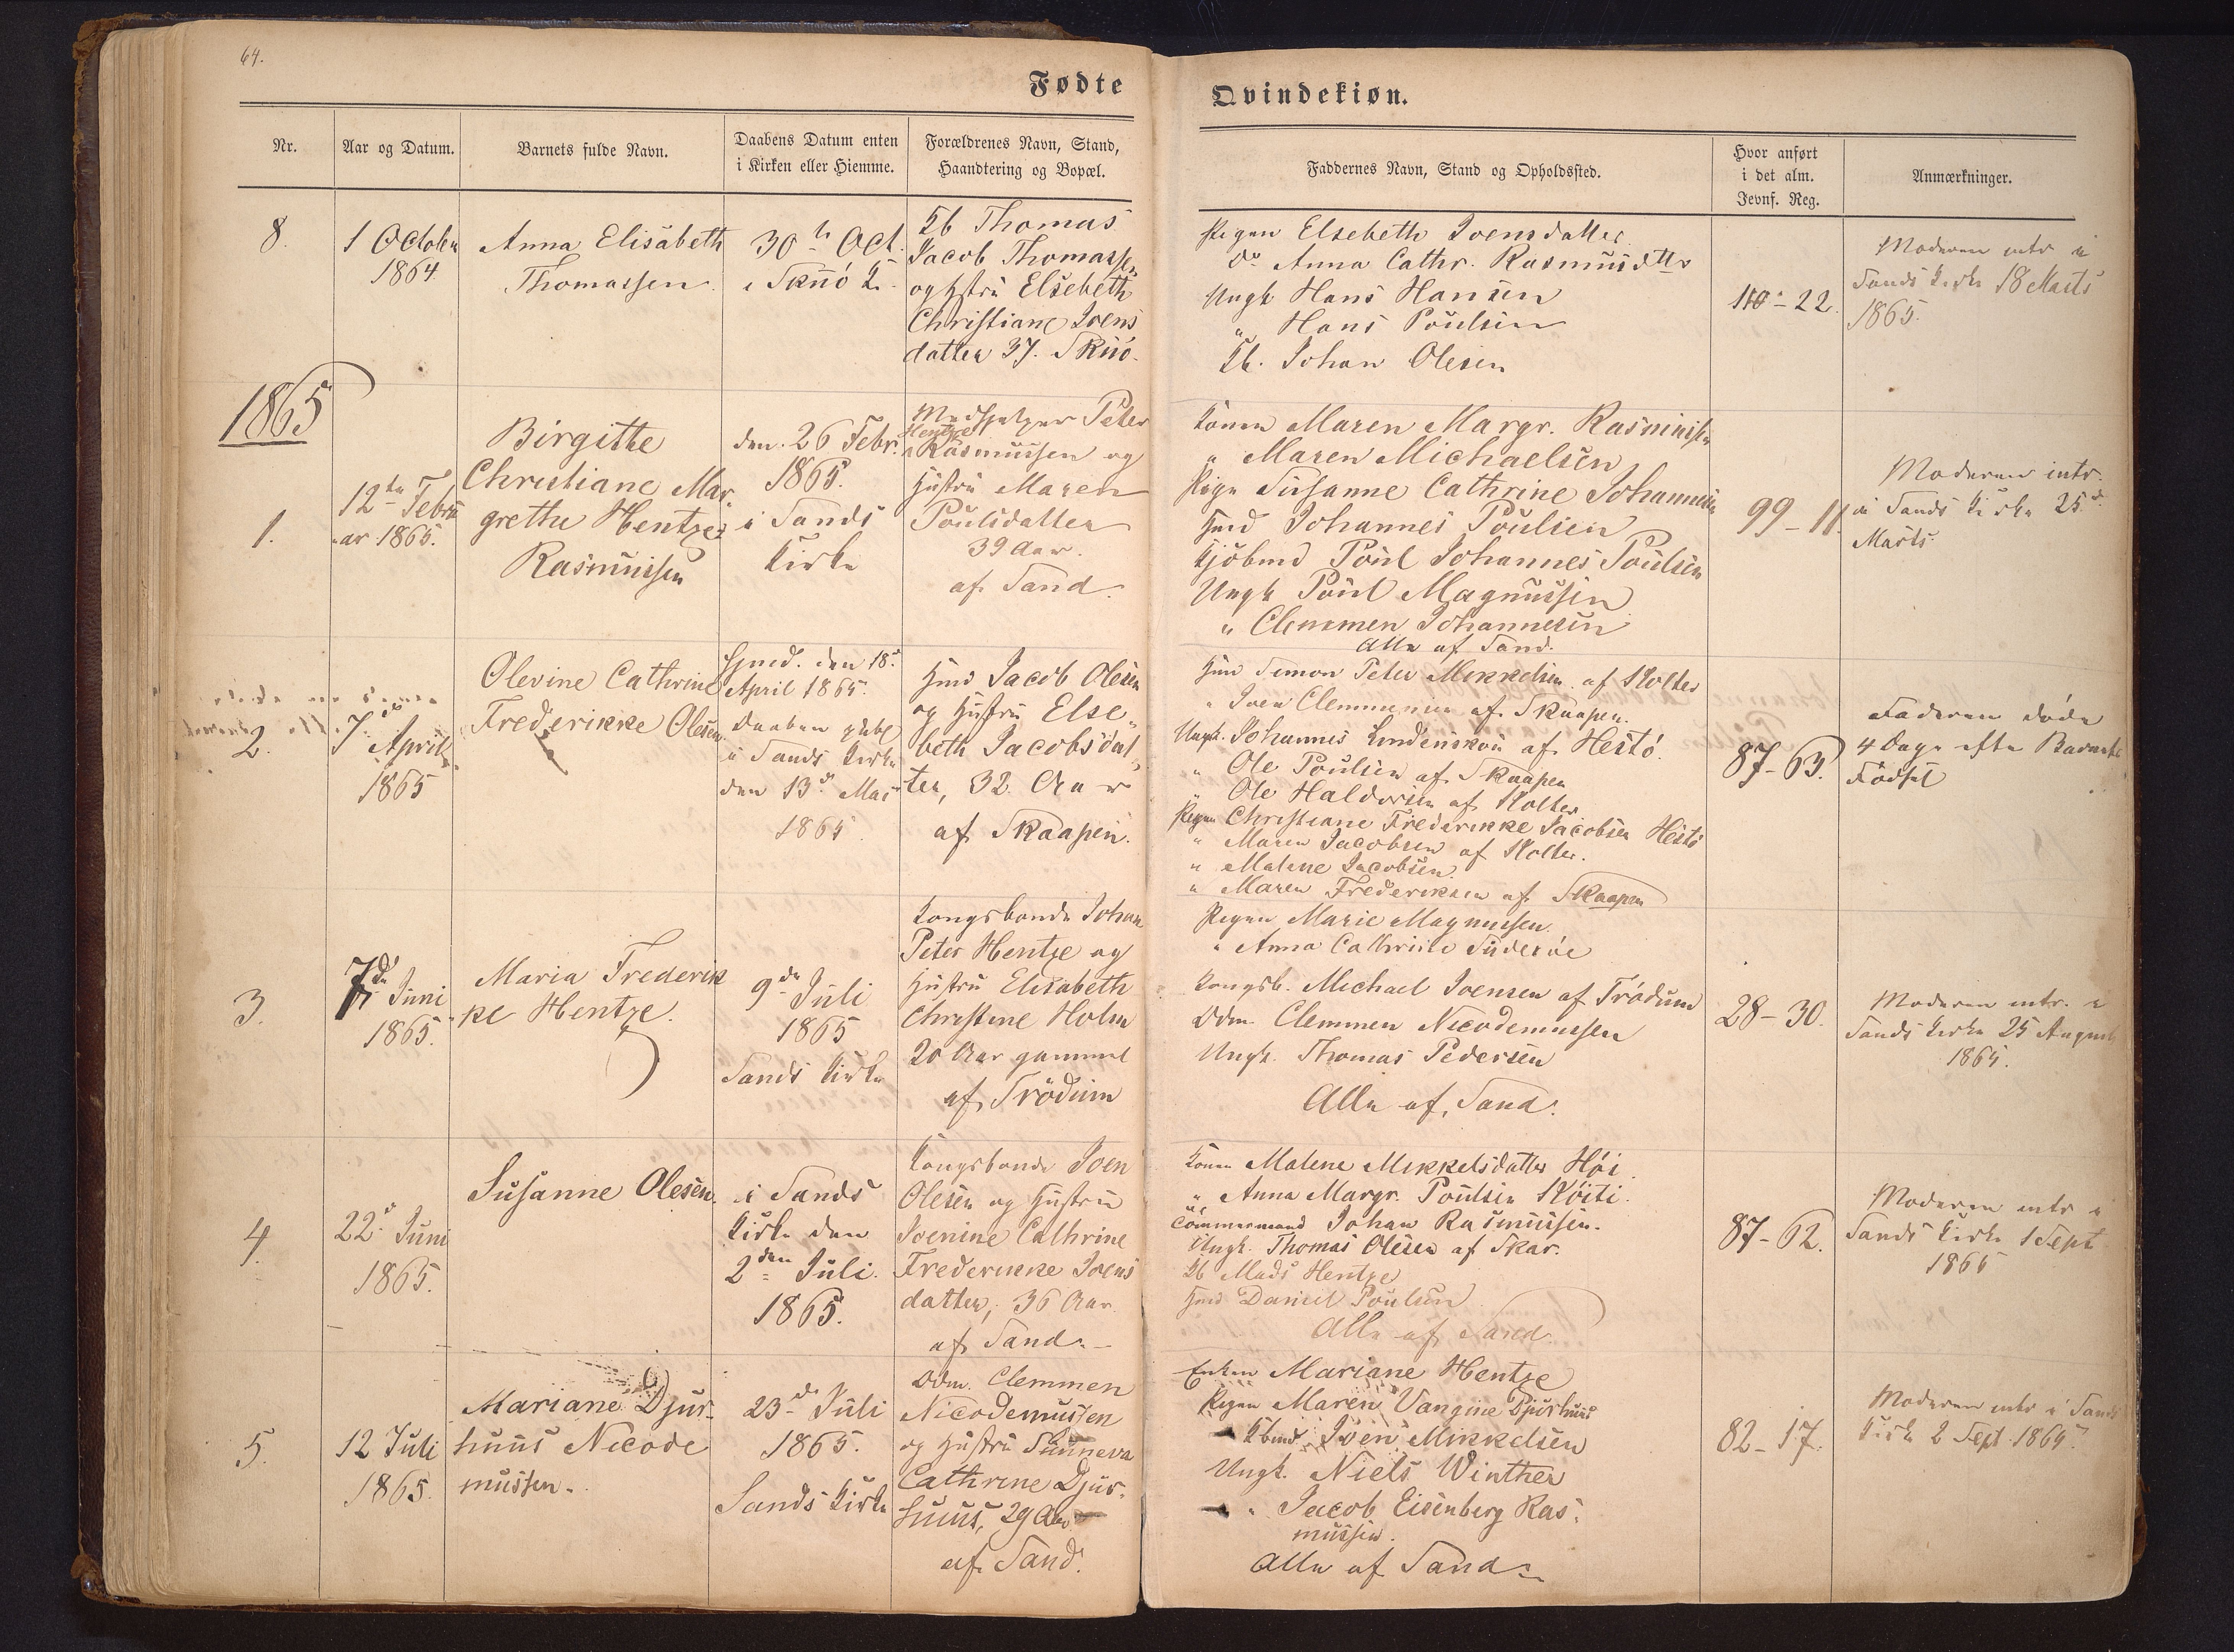 64.
Fødte
Qvindekiøn.
Nr.
Aar og Datum.
Barnets fulde Navn.
Daabens Datum enten
i Kirken eller Hiemme.
Forældrenes Navn, Stand,
Haandtering og Bopæl.
Faddernes Navn, Stand og Opholdssted.
Hvor anført
i det alm.
Jevnf. Reg.
Anmærkninger.
8.
1 October
1864
Anna Elisabeth
Thomassen
30te Oct.
i Skuö K.
Kb Thomas
Jacob Thomassen
og Hstru Elsebeth
Christiane Joens
datter 37. Skuö.
Pigen Elsebeth Joensdatter
do Anna Cathr. Rasmusdttr
Ungk Hans Hansen
" Hans Poulsen
Kb. Johan Olesen
110 - 22.
Moderen intr i
Sands Kirke 18 Marts
1865.
1865
1.
12te Febru
ar 1865.
Birgitte
Christiane Mar
grethe Hentze
Rasmussen
den 26 Febr.
1865.
i Sands
Kirke
Peter
Hentze
Rasmussen og
Hustru Maren
Poulsdatter
39 Aar.
af Sand.
Konen Maren Margr. Rasmussen
" Maren Michaelsen
Pige Susanne Cathrine Johannesen
Hmd Johannes Poulsen
Kjöbmd Poul Johannes Poulsen
Ungk Poul Magnussen
" Clemmen Johannesen
Alle af Sand.
99 - 11.
Moderen intr.
i Sands Kirke 25d
Marts.
2.
7de April
1865
Olevine Cathrine
Frederikke Olesen
Hjmd. den 18d
April 1865.
Daaben
i Sands Kirke
den 13d Mai
1865
Hmd Jacob Olesen
og Hustru Else
beth Jacobsdat
ter, 32 Aar
af Skaapen.
Hmd Simon Peter Mikkelsen af Skolter
" Joen Clemmensen af Skaapen.
Ungk. Johannes Lindenskou af Hestö.
" Ole Poulsen af Skaapen
" Ole Haldorsen af Skolter
Pigen Christiane Frederikke Jacobsen Hestö
" Maren Jacobsen af Skolter.
" Malene Jacobsen
" Maren Frederiksen af Skaapen
87 - 63.
Faderen döde
4 Dage efter Barnets
Födsel
3.
7de Juni
1865.
Maria Frederik
ke Hentze.
9de Juli
1865
Sands Kirke
Kongsbonde Johan
Peter Hentze og
Hustru Elisabeth
Christine Holm
20 Aar gammel
af Trödum
Pigen Marie Magnussen
" Anna Cathrine Süderöe
Kongsb. Michael Joensen af Trödum
Odm. Clemmen Nicodemussen
Ungk. Thomas Pedersen
Alle af Sand.
28 - 30.
Moderen intr. i
Sands Kirke 25 August
1865.
4.
22d Juni
1865.
Susanne Olesen.
i Sands
Kirke den
2den Juli.
1865.
Kongsbonde Joen
Olesen og Hustru
Joenine Cathrine
Frederikke Joens
datter, 36 Aar.
af Sand.
Konen Malene Mikkelsdatter Höi
" Anna Margr. Poulsen
Tömmermand Johan Rasmussen.
Ungk. Thomas Olesen af Skar.
Kb Mads Hentze
Hmd Daniel Poulsen
Alle af Sand.
87 - 62.
Moderen intr i
Sands Kirke 1 Sept
1865
5.
12 Juli
1865.
Mariane Djur
huus Nicode
mussen.
23de Juli
1865.
Sands Kirke
Odm. Clemmen
Nicodemussen
og Hustru Sunneva
Cathrine Djur
huus, 29 Aar
af Sand.
Enken Mariane Hentze
Pigen Maren Vangine Djurhuus
Kbmd. Joen Mikkelsen
Ungk. Niels Winther
" Jacob Eisenberg Ras
mussen.
Alle af Sand.
82 - 17.
Moderen intr i Sands
Kirke 2 Sept. 1865.